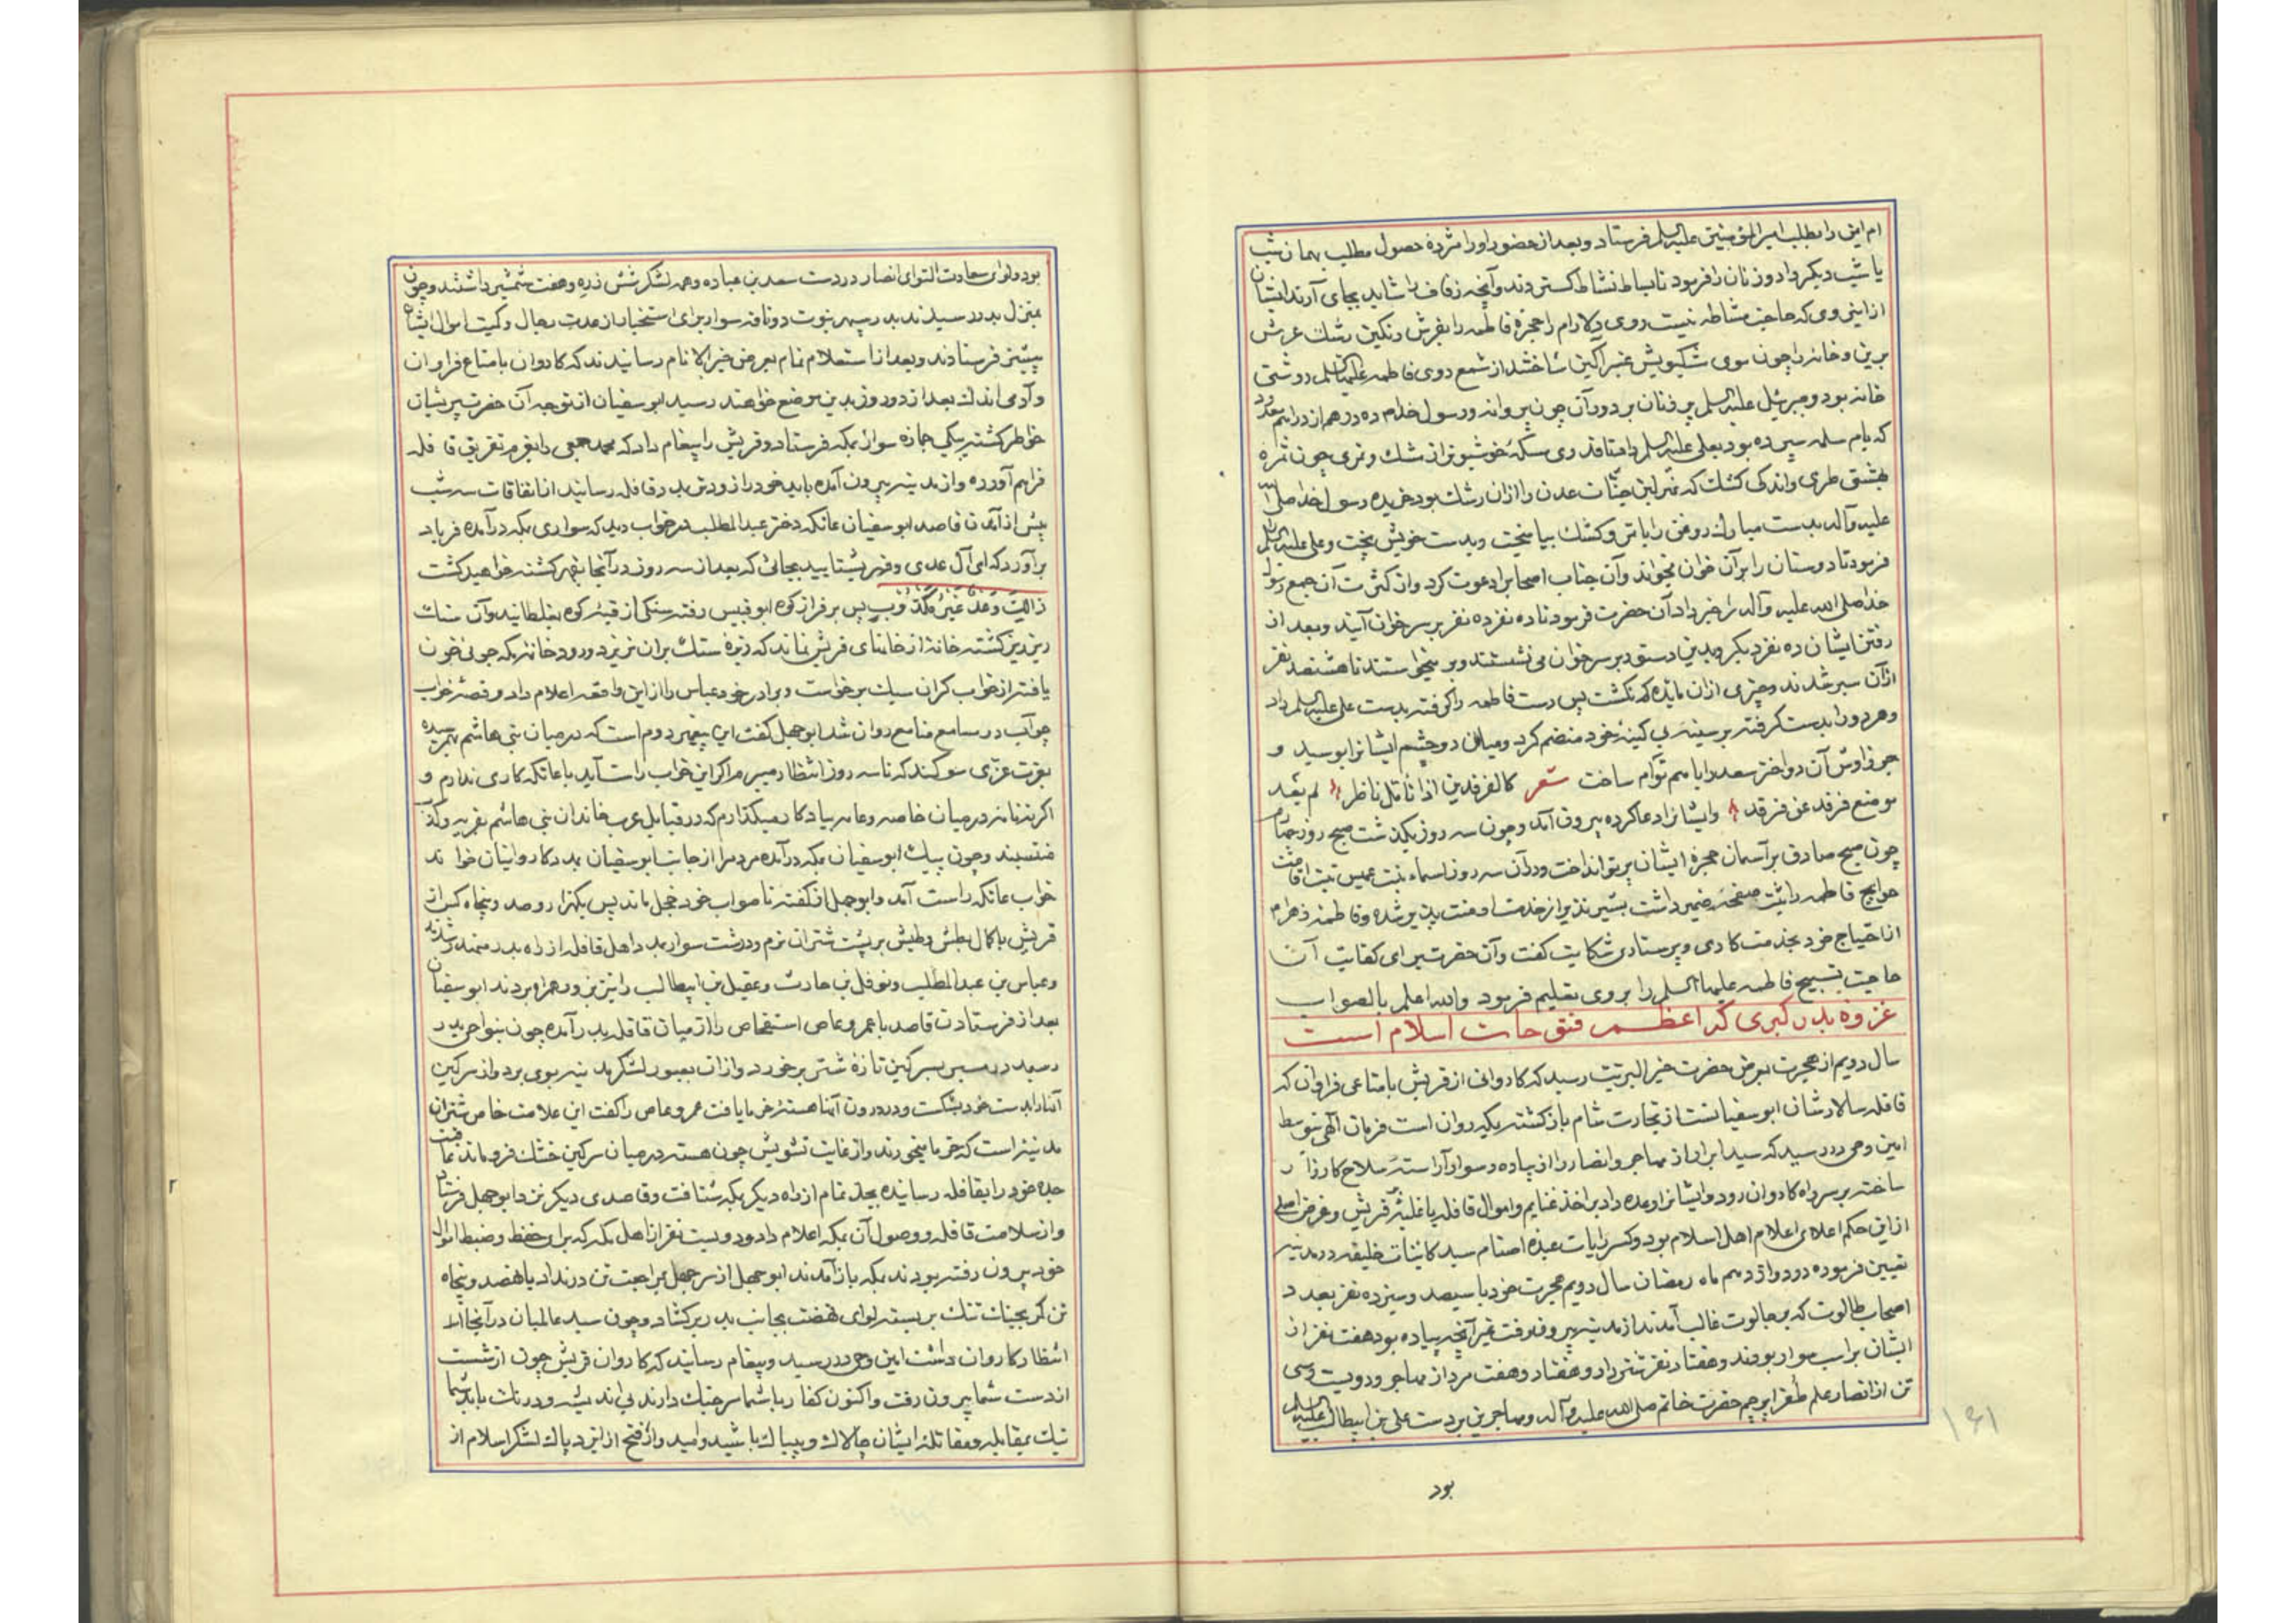 ام ایمن را بطلب امیرالمؤمنین علیه السلم فرستاد و بعد از حضور او را مژدهٔ حصول مطلب بهمان شب
یا شب دیگر داد و زنان را فرمود تا بساط نشاط گستردند و آنچه زفاف را شاید بجای آرند ایشان
از اینروی که حاجت مشاطه نیست روی دلارام را حجرهٔ فاطمه را بفرش رنگین رشک عرش
برین و خانه را چون موی مشکبویش عنبرآگین ساختند از شمع روی فاطمه علیها السلم روشنی
خانه بود و جبرئیل علیه السلم پر زنان بر دور آن چون پروانه و رسول خدا ده درهم از دراهم معدود
که بام سلمه سپرده بود بعلی علیه السلم داد تا قدری سکهٔ خوشبوتر از مشک و تری چون ثمرهٔ
بهشتی طری و اندکی کشک که شیر لبن جنات عدن را از آن رشک بود خریده رسول خدا صلی الله
علیه و آله بدست مبارک روغن را با تمر و کشک بیامیخت و بدست خویش پخت و علی علیه السلم را
فرمود تا دوستان را بر آن خوان بخواند و آن جناب اصحاب را دعوت کرد و از کثرت آن جمع رسول
خدا صلی الله علیه و آله را خبر داد آن حضرت فرمود تا ده نفر ده نفر بر سر خوان آیند و بعد از
رفتن ایشان ده نفر دیگر و بدین دستور بر سر خوان می نشستند و بر میخواستند تا هشتصد نفر
از آن سیر شدند و چیزی از آن مایده کم نگشت پس دست فاطمه را گرفته بدست علی علیه السلم داد
و هر دو را بدست گرفته بر سینهٔ بی کینهٔ خود منضم کرد و میان دو چشم ایشان را بوسید و
چو فراوش آن دو اختر سعد را با هم توأم ساخت شعر کالفرقدین اذا تأمل ناظر لم یعد
موضع فرقد عن فرقد و ایشان را دعا کرده بیرون آمد و چون سه روز بگذشت صبح روز چهارم
چون صبح صادق بر آسمان حجرهٔ ایشان پرتو انداخت و در آن سه روز اسماء بنت عمیس نیت اقامت
حوایج فاطمه را ثبت صفحهٔ ضمیر داشت بشیر نذیر از خدمت او منت پذیر شده و فاطمهٔ زهرا هم
از احتیاج خود بخدمت کاری و پرستاری شکایت گفت و آن حضرت برای کفایت آن
حاجت تسبیح فاطمه علیها السلم را بروی تعلیم فرمود والله اعلم بالصواب
غزوه بدر کبری که اعظم فتوحات اسلام است
سال دویم از هجرت بعرض حضرت خیر البریت رسید که کاروانی از قریش با متاعی فراوان که
قافله سالارشان ابوسفیانست از تجارت شام بازگشته بمکه روان است فرمان الهی بتوسط
امین وحی در رسید که سید ابرار از مهاجر و انصار را از پیاده و سوار آراستهٔ سلاح کارزار
ساخته بر سر راه کاروان رود و ایشان را وعده داد بر اخذ غنایم و اموال قافله یا غلبه بر قریش و غرض اصلی
از این حکم اعلای اعلام اهل اسلام بود و کسر رایات عبدهٔ اصنام سید کاینات خلیفه در مدینه
تعیین فرموده در دوازدهم ماه رمضان سال دویم هجرت خود با سیصد و سیزده نفر بعدد
اصحاب طالوت که بر جالوت غالب آمدند از مدینه بیرون رفت غیر آنچه پیاده بود هفت نفر از
ایشان بر اسب سوار بودند و هفتاد نفر شتر داد و هفتاد و هفت مرد از مهاجر و دویست و سی
تن از انصار علم ظفر پرچم حضرت خاتم صلی الله علیه و آله و مهاجرین بر دست علی بن ابیطالب علیه السلم
بود
۱۶۱
بود و لوای سعادت التوای انصار در دست سعد بن عباده و همه لشکر شش زره و هفت شمشیر داشتند و چون
بمنزل بدر رسیدند بدر سپهر نبوت دو ناقه سوار برای استخبار از عدت رجال و کمیت اموال ایشان
پیشتر فرستادند و بعد از استعلام تمام بعرض خیر الانام رسانیدند که کاروان با متاع فراوان
و آدمی اندک بعد از دو روز بدین موضع خواهند رسید ابوسفیان از توجه آن حضرت پریشان
خواطر گشته پیکی جمازه سوار بمکه فرستاد و قریش را پیغام داد که محمد جمعی را بعزم تفریق قافله
فراهم آورده و از مدینه بیرون آمده باید خود را زودتر بدر قافله رسانید از اتفاقات سه شب
پیش از آمدن قاصد ابوسفیان عاتکه دختر عبدالمطلب در خواب دید که سواری بمکه در آمده فریاد
برآورد که ای آل عدی و فهر بشتابید بجائی که بعد از سه روز در آنجا بقهر کشته خواهید گشت
ذالک وعد غیر مکذوب پس بر فراز کوه ابوقبیس رفته سنگی از قبهٔ کوه بغلطانید و آن سنک
ریز ریز گشته خانهٔ از خانهای قریش نماند که ریزهٔ سنک بر آن نریزد و رود خانهٔ مکه جوئی خون
یافته از خواب گران سبک برخواست و برادر خود عباس را از این واقعه اعلام داد و قصهٔ خواب
چو آب در مسامع مجامع روان شد ابوجهل گفت این پیغمبر دوم است که در میان بنی هاشم بهم رسیده
بعزت عزی سوگند که تا سه روز انتظار میبرم اگر این خواب راست آید با عاتکه کاری ندارم و
اگر نه نامه در میان خاصه و عامه بیادگار میگذارم که در قبایل عرب خاندان بنی هاشم بفریه و کذب
منتسبند و چون پیک ابوسفیان بمکه در آمده مردم را از جانب ابوسفیان بمدد کاروانیان خواند
خواب عاتکه راست آمد و ابوجهل از گفته ناصواب خود خجل ماند پس یکهزار و صد و پنجاه کس از
قریش با کمال بطش و طیش بر پشت شتران نرم و درشت سوار بمدد اهل قافله از راه بدر متمدد شدند
و عباس بن عبدالمطلب و نوفل بن حارث و عقیل بن ابیطالب را نیز بزور همراه بردند ابوسفیان
بعد از فرستادن قاصد با عمرو عاص استفحاص را از میان قافله بدر آمده چون بنواحی بدر
رسید در مسیر بسرگین تازهٔ شتر برخورد و از آن بعبور لشکر مدینه بوی برد و از سرگین
آنها را بدست خود بشکست و در درون آنها هستهٔ خرما یافت عمرو عاص را گفت این علامت خاص شتران
مدینه است که خرما میخورند و از غایت تشویش چون هسته در میان سرگین خشک فرو ماند
جله خود را بقافله رسانیده بجد تمام از راه دیگر بمکه شتافت و قاصدی دیگر نزد ابوجهل فرستاد
و از سلامت قافله و وصول آن بمکه اعلام داد و دویست نفر از اهل مکه که برای حفظ و ضبط اموال
خود بیرون رفته بودند بمکه باز آمدند ابوجهل از سر جهل بمراجعت تن در نداد با نهصد و پنجاه
تن کمر بجنک تنک بر بسته لوای نهضت بجانب بدر برکشاد و چون سید عالمیان در آنجا
انتظار کاروان داشت امین وحی در رسید و پیغام رسانید که کاروان قریش چون از شست
از دست شما بیرون رفت و اکنون کفار با شما سر جنک دارند بی اندیشه و درنک باید شما
نیک بمقابله و مقاتله ایشان چالاک و بیباک باشید و امید وار فتح از ایزد پاک لشکر اسلام از